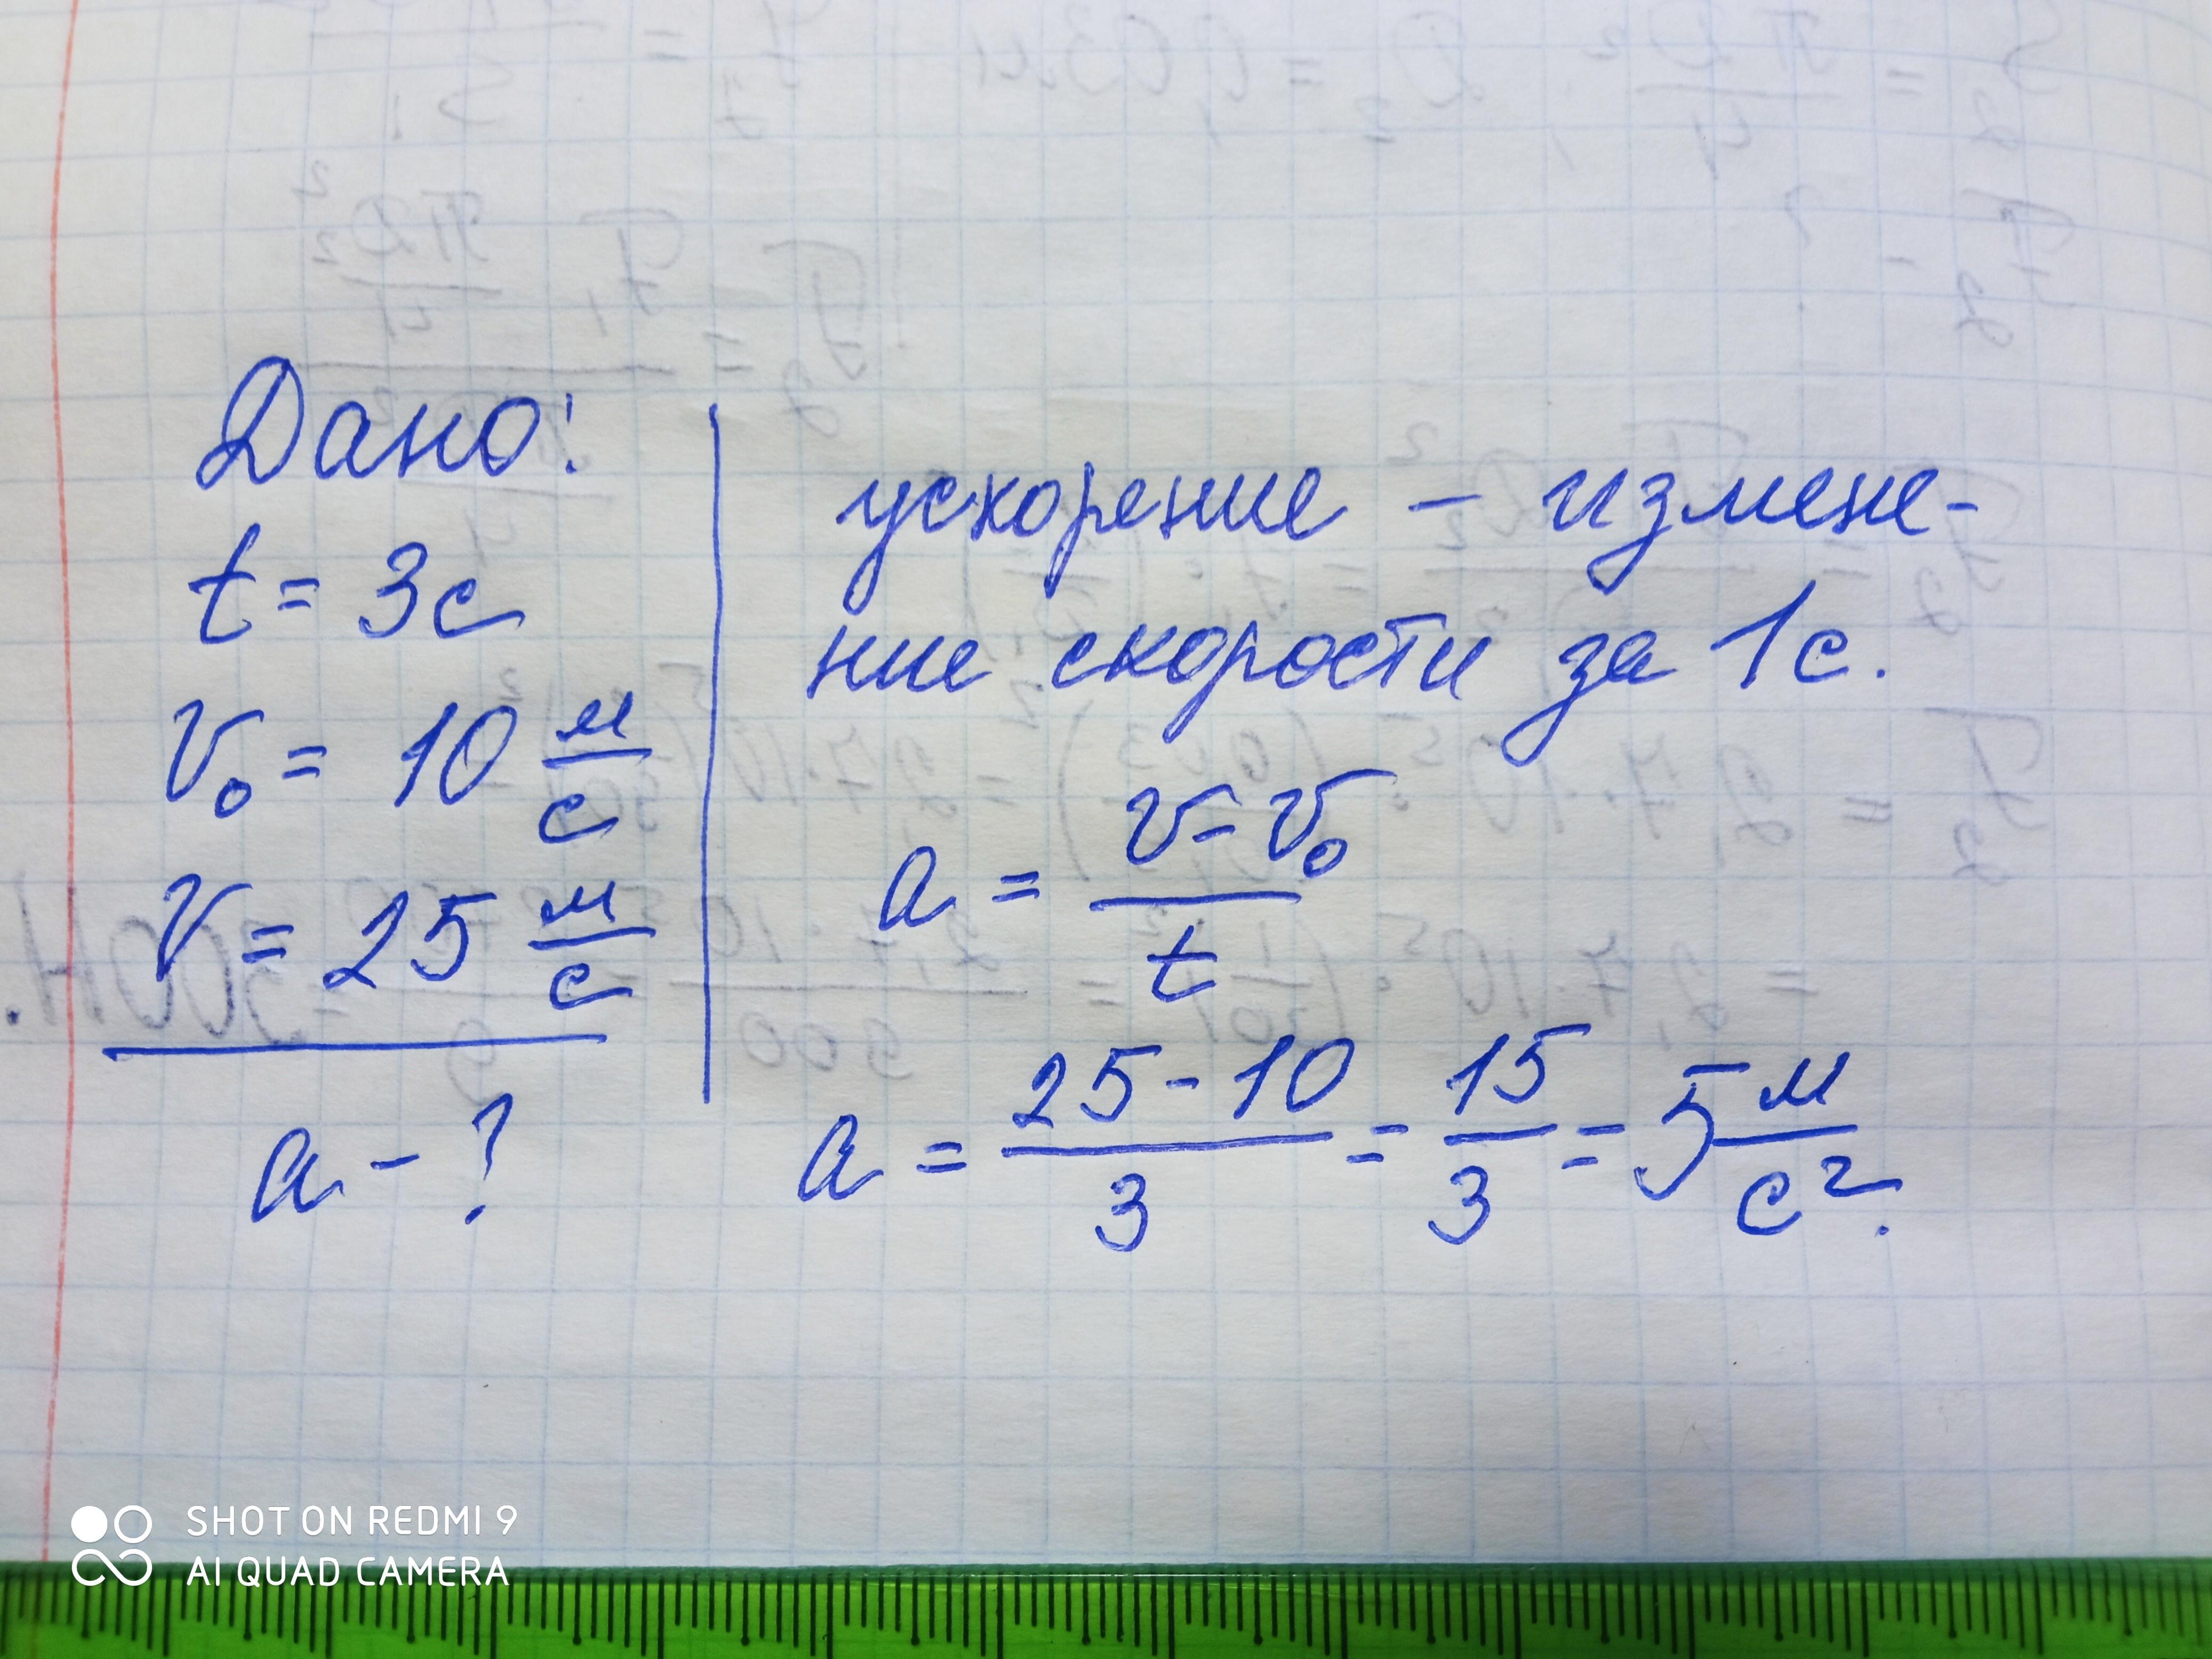 Дано:
t = 3с
v₀ = 10 м/с
v = 25 м/с
a - ?
ускорение - измене-
ние скорости за 1с.
a = (v - v₀)/t
a = (25 - 10)/3 = 15/3 = 5 м/с².
SHOT ON REDMI 9
AI QUAD CAMERA